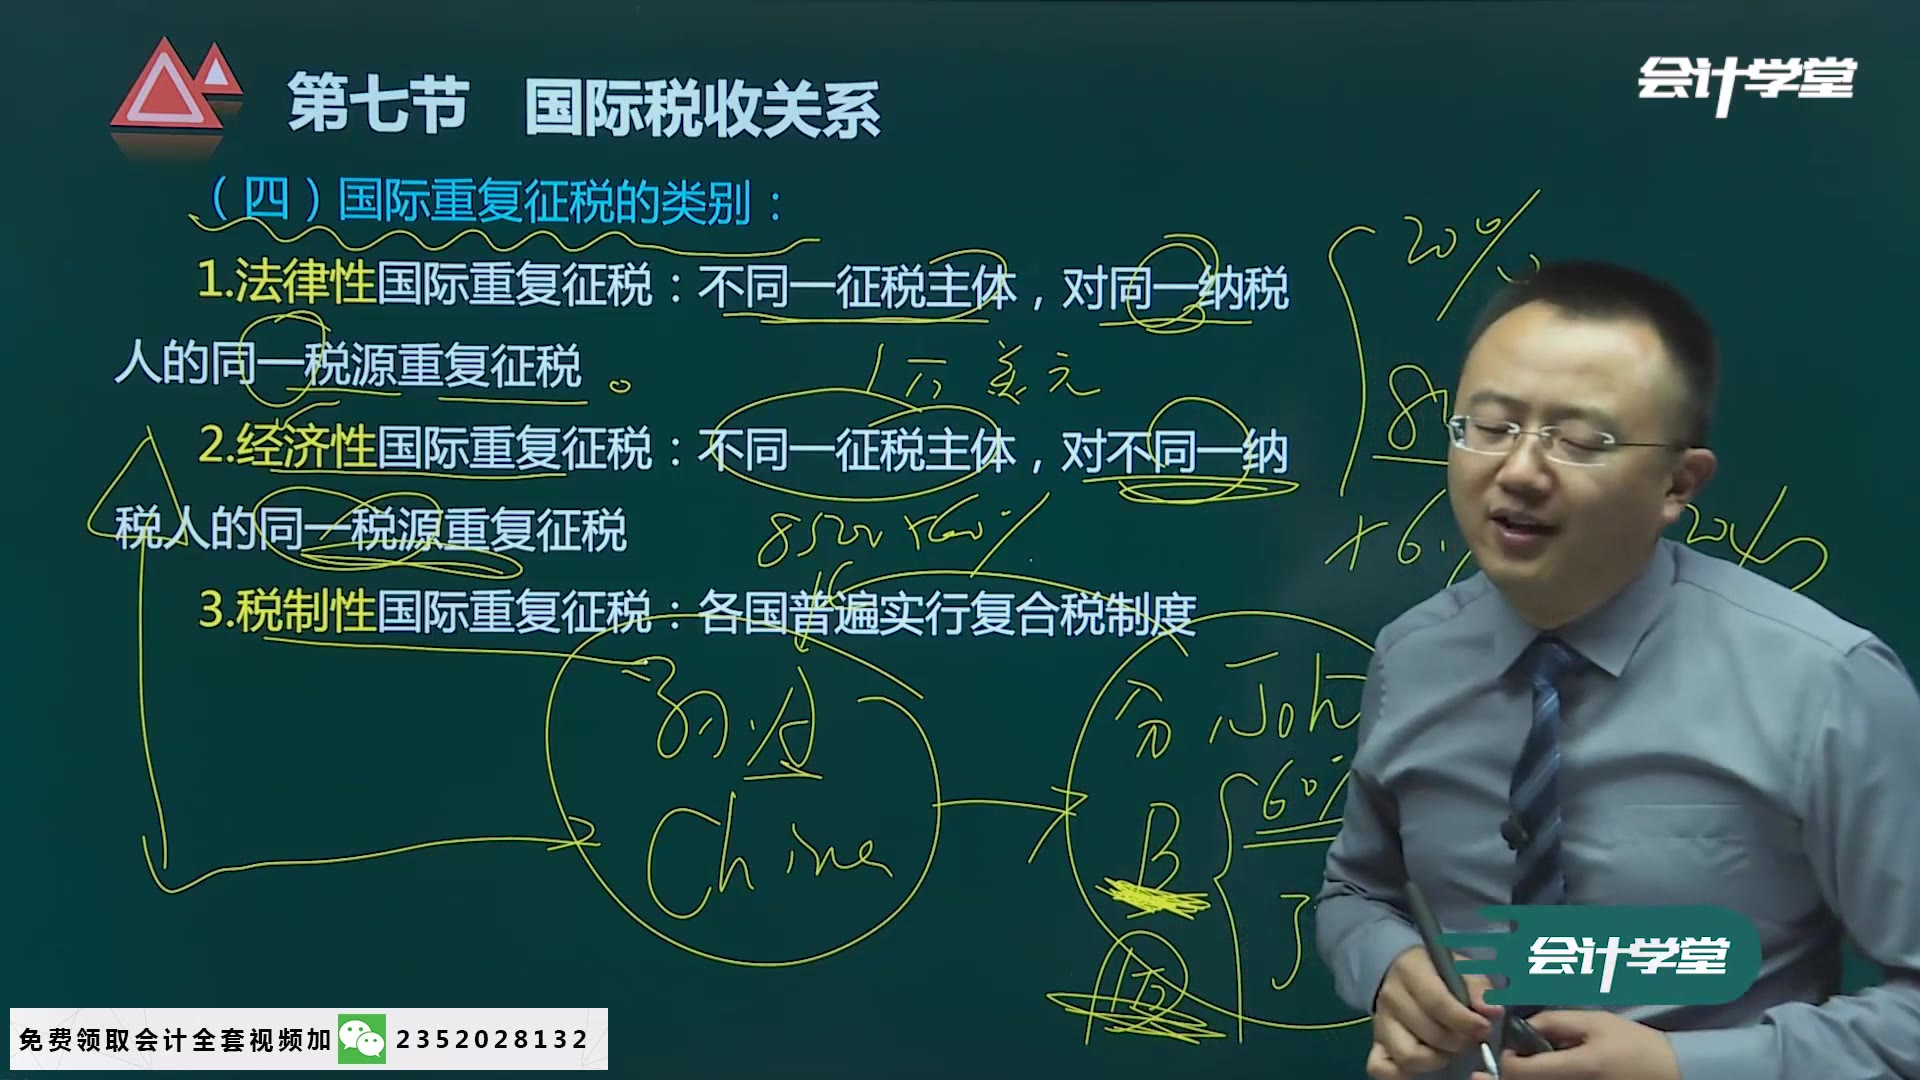 第七节 国际税收关系
会计学堂
（四）国际重复征税的类别：
1.法律性国际重复征税：不同一征税主体，对同一纳税
人的同一税源重复征税
1万美元
2.经济性国际重复征税：不同一征税主体，对不同一纳
税人的同一税源重复征税
3.税制性国际重复征税：各国普遍实行复合税制度
20%
20%
China
分
60%
B
会计学堂
免费领取会计全套视频加 2352028132